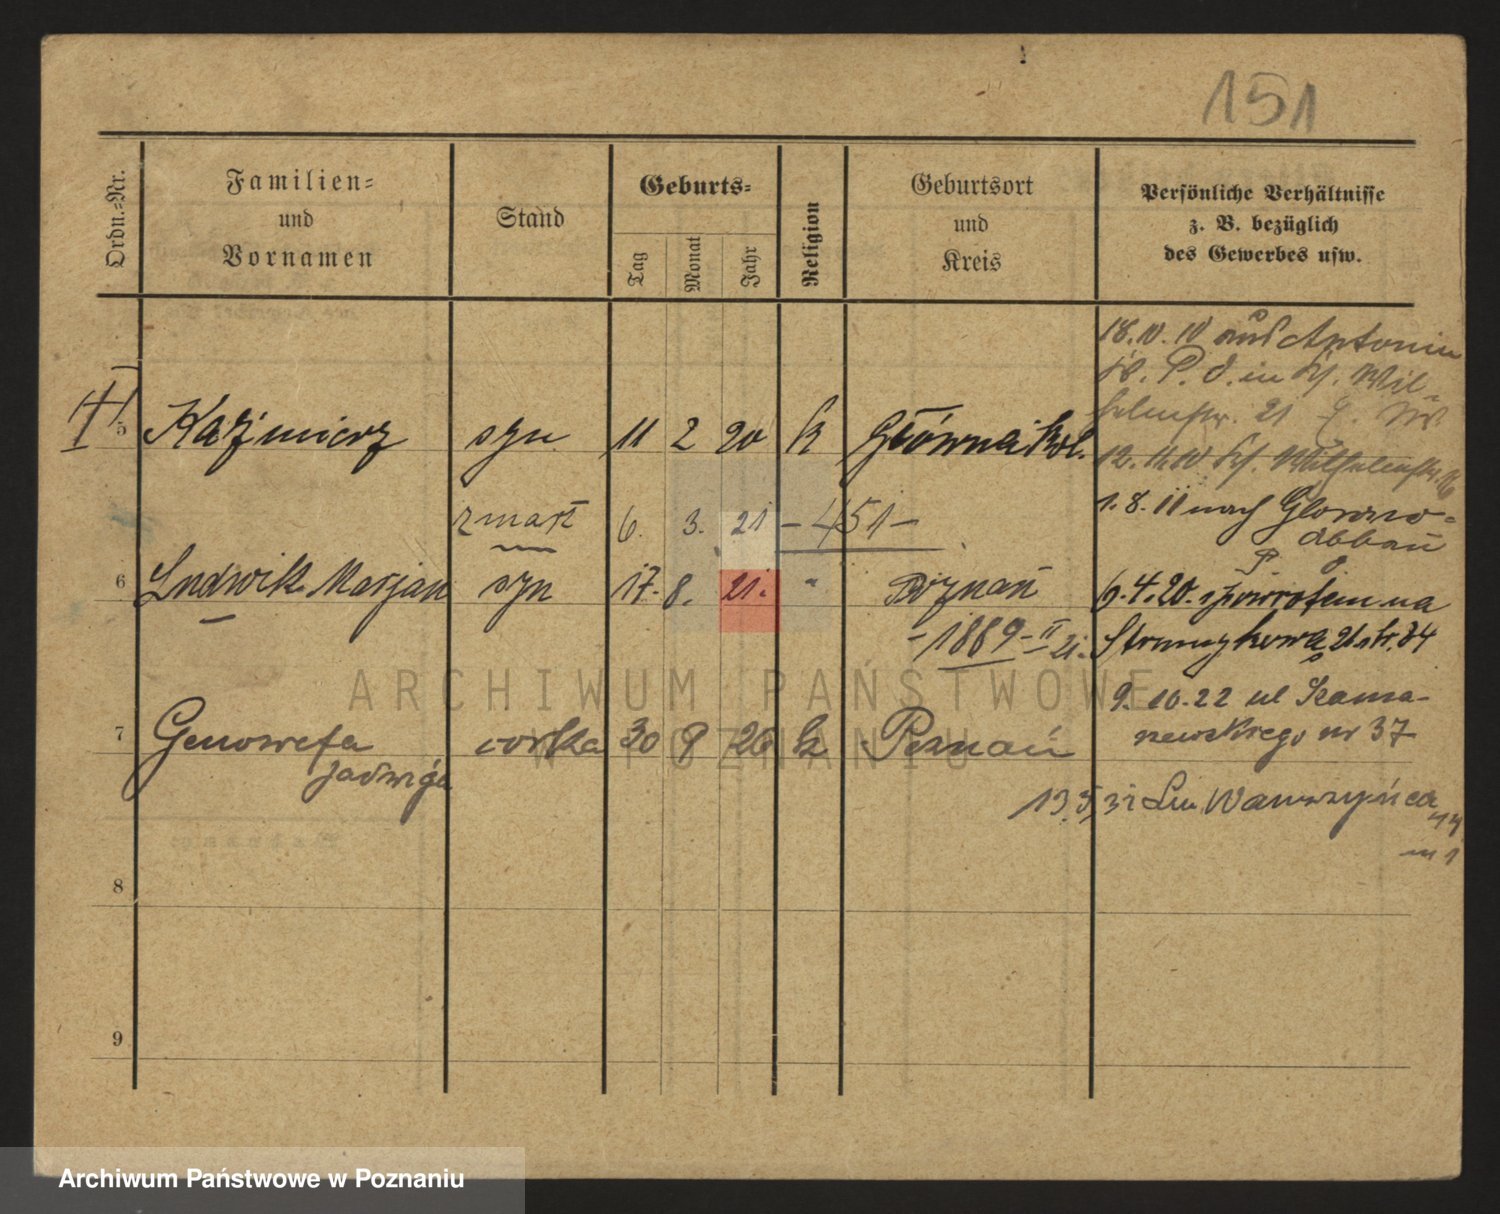 151
Ordn.-Nr.
Familien-
und
Vornamen
Stand
Geburts-
Tag
Monat
Jahr
Religion
Geburtsort
und
Kreis
Persönliche Verhältnisse
z. B. bezüglich
des Gewerbes usw.
18.10.10 Antonin
P. O. in Wil-
21
12.11.10
5 Kazimierz syn 11 2 20 k Główna kol.
zmarł 6. 3. 21 - 451 -
1.8.11 nach Glowno-
abbau
P. O.
6 Ludwik Marjan syn 17. 8. 21. " Poznań
6.4.20. z powrotem na
- 1889 - II 21.
34
9.10.22 ul
nr 37
7 Genowefa córka 30 9 26 k Poznań
Jadwiga
13.5.31 Wawrzyńca
14
m 1
8
9
ARCHIWUM PAŃSTWOWE
W POZNANIU
Archiwum Państwowe w Poznaniu